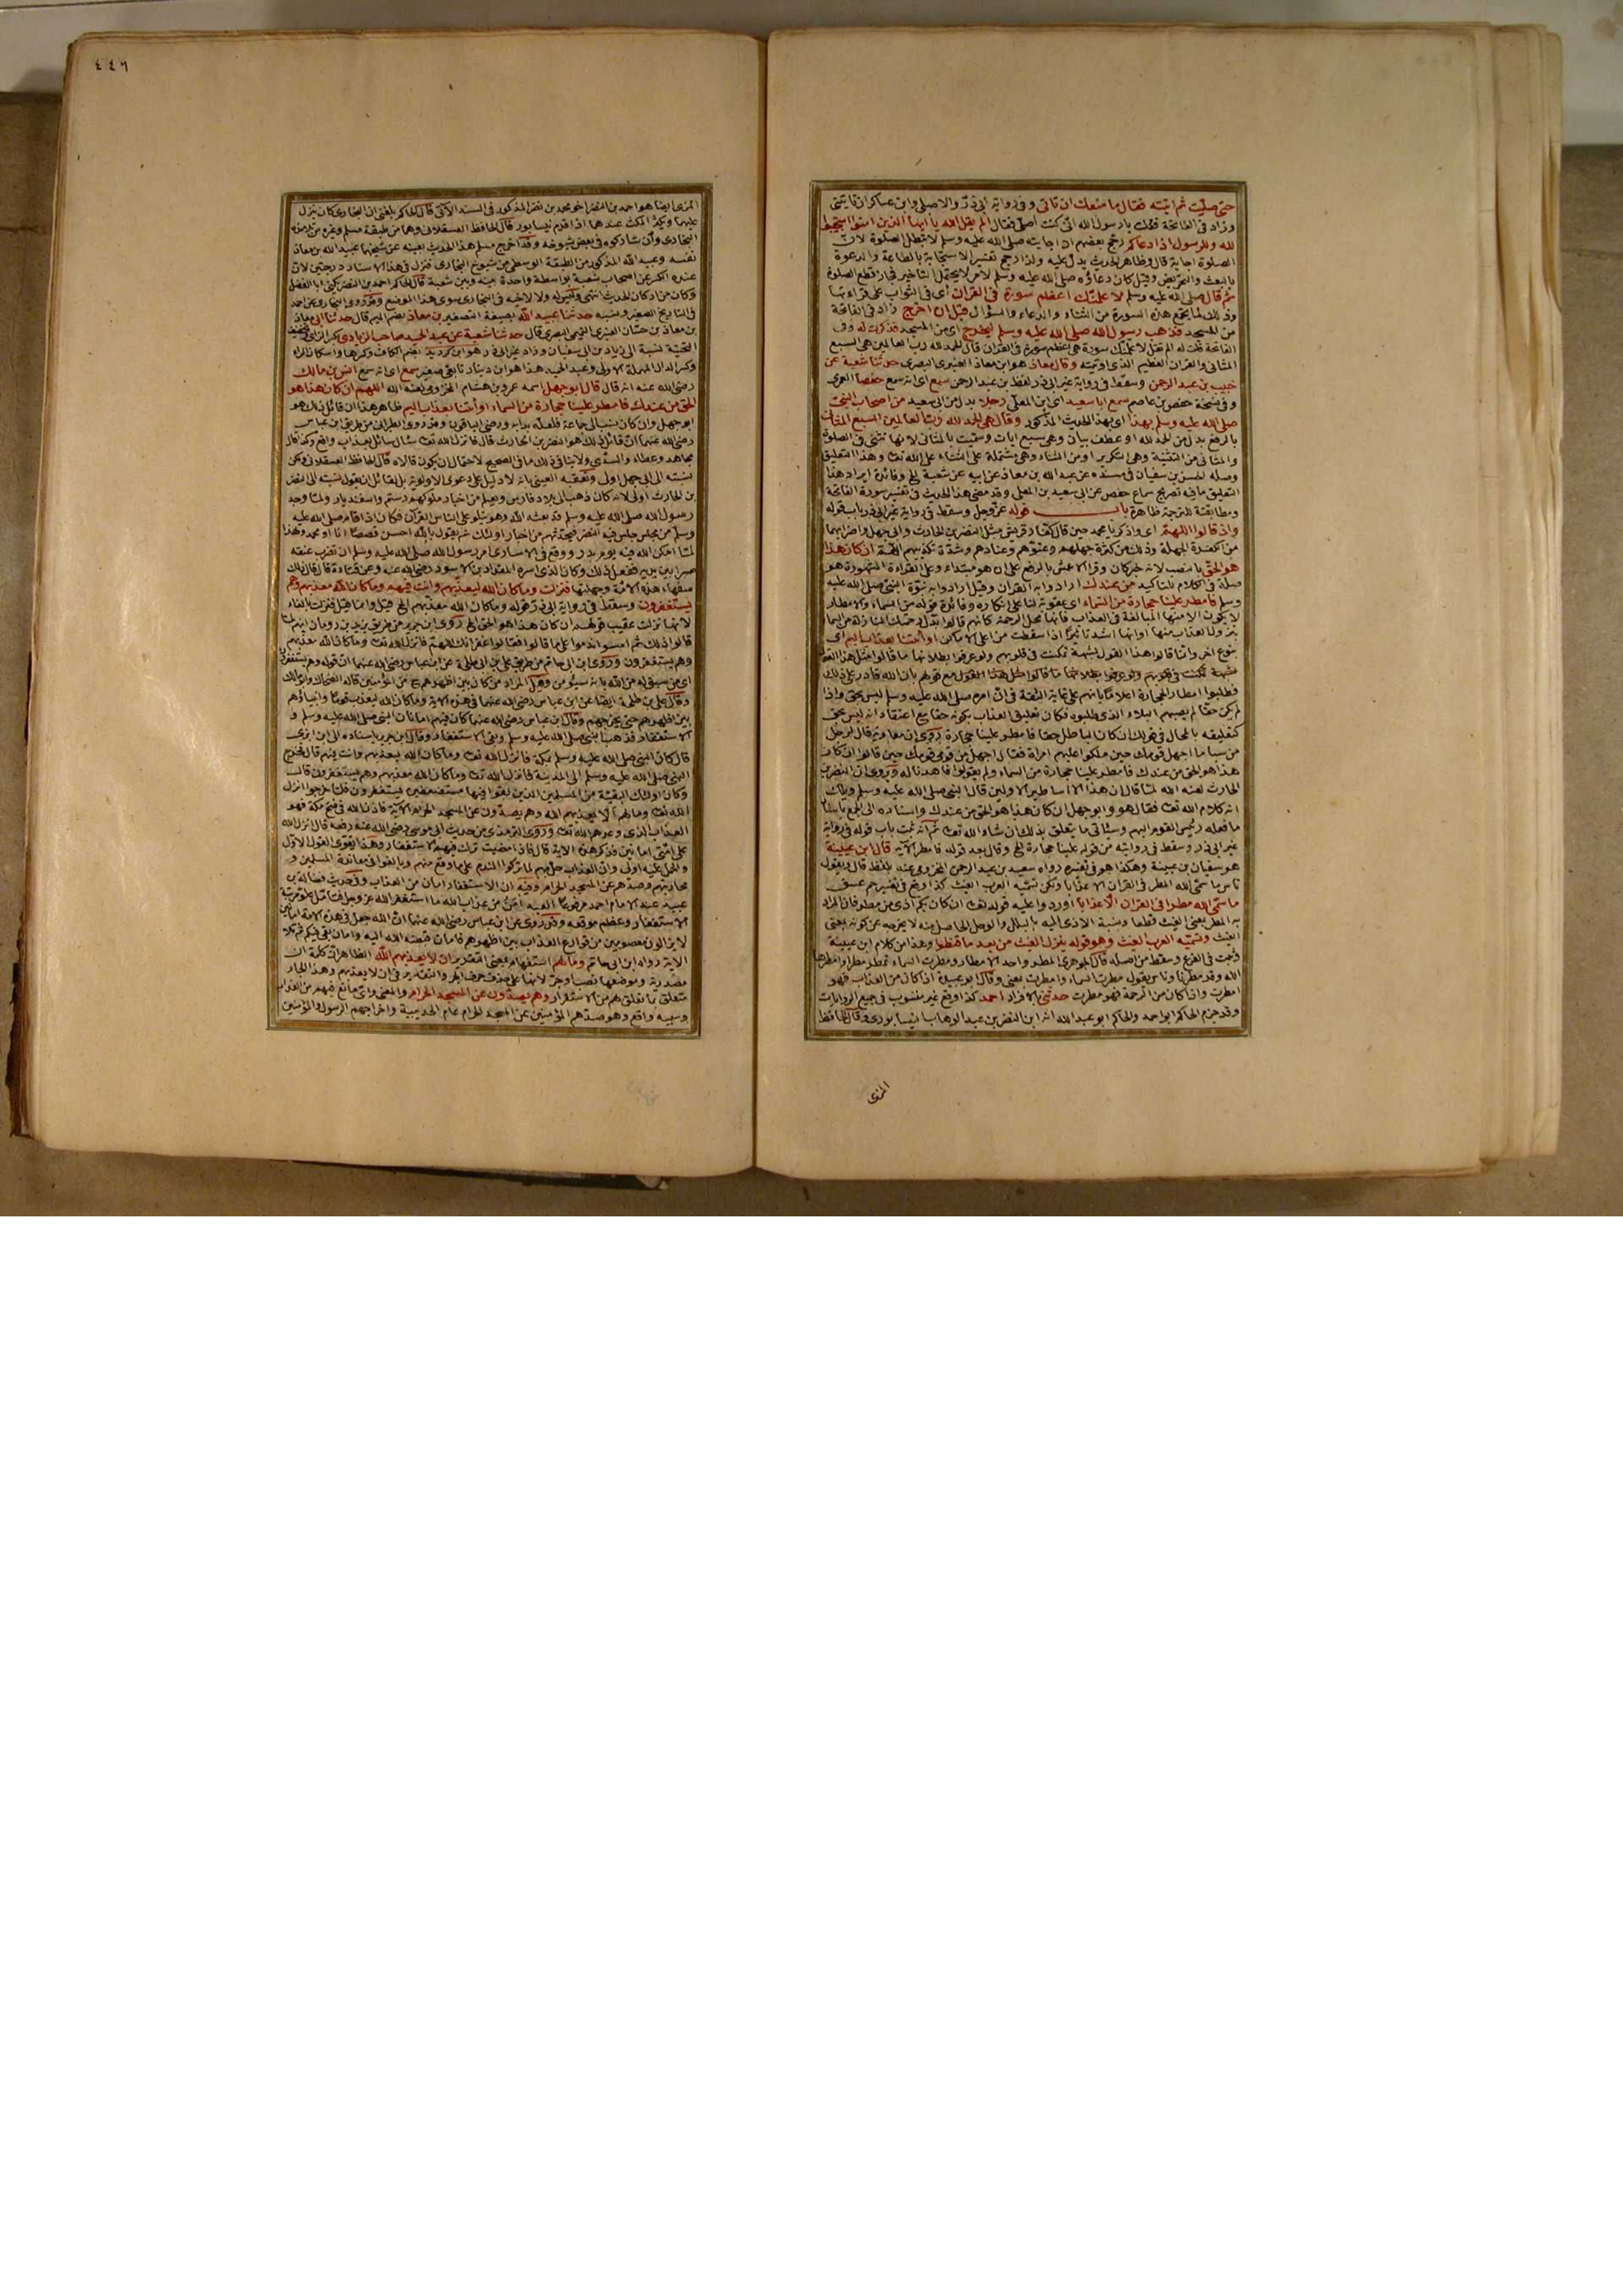 حتى صليت ثم اتيته فقال ما منعك ان تاتى وفى رواية ابى ذر والاصيلى وابن عساكر ان تاتينى
وزاد فى الفاتحة فقلت يارسول الله انى كنت اصلى فقال الم يقل الله يا ايها الذين امنوا استجيبوا
لله وللرسول اذا دعاكم رجح بعضهم ان اجابته صلى الله عليه وسلم لا تبطل الصلوة لان
الصلوة اجابة قال وظاهر الحديث يدل عليه ولذا رجح تفسير الاستجابة بالطاعة والدعوة
بالبعث والتحريض وقيل كان دعاؤه صلى الله عليه وسلم لامر لا يحتمل التاخير فجاز قطع الصلوة
ثم قال صلى الله عليه وسلم لاعلمنك اعظم سورة فى القران اى فى الثواب على قراءتها
وذلك لما يجمع هذه السورة من الثناء والدعاء والسؤال قبل ان اخرج زاد فى الفاتحة
من المسجد فذهب رسول الله صلى الله عليه وسلم ليخرج اى من المسجد فذكرت له وفى
الفاتحة قلت له الم تقل لاعلمنك سورة هى اعظم سورة فى القران قال الحمد لله رب العالمين هى السبع
المثانى والقران العظيم الذى اوتيته وقال معاذ هو ابن معاذ العنبرى البصرى حدثنا شعبة عن
خبيب بن عبد الرحمن وسقط فى رواية غير ابى ذر لفظ بن عبد الرحمن سمع اى انه سمع حفصا العمرى
وفى نسخة حفص بن عاصم سمع ابا سعيد اى ابن المعلى رجلا بدل من ابى سعيد من اصحاب النبى
صلى الله عليه وسلم بهذا اى بهذا الحديث المذكور وقال هى الحمد لله رب العالمين السبع المثانى
بالرفع بدل من الحمد لله او عطف بيان وهى سبع ايات وسميت بالمثانى لانها تثنى فى الصلوة
والمثانى من التثنية وهى التكرير او من الثناء وهى مشتملة على الثناء على الله تعا وهذا التعليق
وصله الحسن بن سفيان فى مسنده عن عبد الله بن معاذ عن ابيه عن شعبة الخ وفائدة ايراد هذا
التعليق ما فيه تصريح سماع حفص عن ابى سعيد بن المعلى وقد مضى هذا الحديث فى تفسير سورة الفاتحة
ومطابقته للترجمة ظاهرة باب قوله عز وجل وسقط فى رواية غير ابى ذر باب قوله
واذ قالوا اللهم اى واذكر يا محمد حين قال كفار قريش مثل النضر بن الحارث وابى جهل واضرابهما
من الكفرة الجهلة وذلك من كثرة جهلهم وعتوهم وعنادهم وشدة تكذيبهم اللهم ان كان هذا
هو الحق بالنصب لانه خبر كان وقرا الاعمش بالرفع على ان هو مبتداء وعلى القراءة المشهورة هو
صلة فى الكلام للتاكيد من عندك ارادوا به القران وقيل ارادوا به نبوة النبى صلى الله عليه
وسلم فامطر علينا حجارة من السماء اى عقوبة لنا على انكاره وفائدة قوله من السماء والامطار
لا يكون الا منها المبالغة فى العذاب فانها محل الرحمة كانهم قالوا بدل رحمتك النازلة من السماء
بنزول العذاب منها او انها اشد تاثيرا اذا سقطت من اعلى الاماكن او أتتنا بعذاب اليم اى
بنوع اخر وانما قالوا هذا القول لشبهة تمكنت فى قلوبهم ولو عرفوا بطلانها ما قالوا مثل هذا القول
فطلبوا امطار الحجارة اعلاما بانهم على غاية الثقة فى ان امره صلى الله عليه وسلم ليس بحق واذا
لم يكن حقا لم يصبهم البلاء الذى طلبوه فكان تعليق العذاب بكونه حقا مع اعتقاد انه ليس بحق
كتعليقه بالمحال فى قولك ان كان الباطل حقا فامطر علينا حجارة روى ان معاوية قال لرجل
من سبا ما اجهل قومك حين ملكوا عليهم امراة فقال اجهل من قومى قومك حين قالوا ان كان
هذا هو الحق من عندك فامطر علينا حجارة من السماء ولم يقولوا فاهدنا له وروى ان النضر بن
الحارث لعنه الله لما قال ان هذا الا اساطير الاولين قال النبى صلى الله عليه وسلم ويلك
انه كلام الله تعا فقال هو وابو جهل ان كان هذا هو الحق من عندك واسناده الى الجمع باسناد
ما فعله رئيس القوم اليهم وسياتى ما يتعلق بذلك ان شاء الله تعا ثم انه ثبت باب قوله فى رواية
غير ابى ذر وسقط فى روايته من قوله علينا حجارة الخ وقال بعد قوله فامطر الاية قال ابن عيينة
هو سفيان بن عيينة وهكذا هو فى تفسيره رواه سعيد بن عبد الرحمن المخزومى عنه بلفظ قال ويقول
ناس ما سمى الله المطر فى القران الا عذابا ولكن تسميه العرب الغيث كذا وقع فى تفسير حم عسق
ما سمى الله مطرا فى القران الا عذابا اورد واعليه قوله تعا ان كان بكم اذى من مطر فان المراد
به المطر بمعنى الغيث قطعا ونسبة الاذى اليه بالبلل والوحل الحاصل منه لا يخرجه عن كونه بمعنى
الغيث وتسميه العرب الغيث وهو قوله ينزل الغيث من بعد ما قنطوا وهذا من كلام ابن عيينة
وثبت فى الفرع وسقط من اصله قال الجوهرى المطر واحد الامطار ومطرت السماء تمطر مطرا وامطرها
الله وقد مطرنا وناس يقول مطرت السماء وامطرت بمعنى وقال ابو عبيدة اذا كان من العذاب فهو
امطرت واذا كان من الرحمة فهو مطرت حدثنى بالافراد احمد كذا وقع غير منسوب فى جميع الروايات
وقد جزم الحاكم ابو احمد والحاكم ابو عبد الله انه ابن النضر بن عبد الوهاب النيسابورى وقال الحافظ
المزى
٤٤٦
المزى ايضا هو احمد بن النضر اخو محمد بن النضر المذكور فى السند الاتى قال الحاكم بلغنى ان البخارى كان ينزل
عليهما ويكثر المكث عندهما اذا قدم نيسابور قال الحافظ العسقلانى وهما من طبقة مسلم وغيره من تلامذة
البخارى وان شاركوه فى بعض شيوخه وقد اخرج مسلم هذا الحديث بعينه عن شيخهما عبيد الله بن معاذ
نفسه وعبيد الله المذكور من الطبقة الوسطى من شيوخ البخارى فنزل فى هذا الاسناد درجتين لان
عنده الكثير عن اصحاب شعبة بواسطة واحدة بينه وبين شعبة قال الحاكم احمد بن النضر يكنى ابا الفضل
وكان من اركان الحديث انتهى وليس له ولا لاخيه فى البخارى سوى هذا الموضع وقد روى البخارى عن احمد
فى التاريخ الصغير ونسبه حدثنا عبيد الله بصيغة التصغير بن معاذ بضم الميم قال حدثنا ابى معاذ
بن معاذ بن حسان العنبرى التيمى البصرى قال حدثنا شعبة عن عبد الحميد صاحب الزيادى بكسر الزاى وتخفيف
التحتية نسبة الى زياد بن ابى سفيان وزاد غير ابى ذر هو ابن كرديد بضم الكاف وكسرها واسكان الراء
وكسر الدال المهملة الاولى وعبد الحميد هذا هو ابن دينار تابعى صغير سمع اى انه سمع انس بن مالك
رضى الله عنه انه قال قال ابو جهل اسمه عمرو بن هشام المخزومى لعنه الله اللهم ان كان هذا هو
الحق من عندك فامطر علينا حجارة من السماء او أتتنا بعذاب اليم ظاهر هذا ان قائل ذلك هو
ابو جهل وان كان نسب الى جماعة فلعله بدا به ورضى الباقون وقد روى الطبرانى من طريق ابن عباس
رضى الله عنهما ان قائل ذلك هو النضر بن الحارث قال فانزل الله تعا سال سائل بعذاب واقع وكذا قال
مجاهد وعطاء والسدى ولا ينافى ذلك ما فى الصحيح لاحتمال ان يكون قالاه قال الحافظ العسقلانى ولكن
نسبته الى ابى جهل اولى وتعقبه العينى بانه لا دليل على دعوى الاولوية بل لقائل ان يقول نسبته الى النضر
بن الحارث اولى لانه كان ذهب الى بلاد فارس وتعلم من اخبار ملوكهم رستم واسفنديار ولما وجد
رسول الله صلى الله عليه وسلم قد بعثه الله وهو يتلو على الناس القران فكان اذا قام صلى الله عليه
وسلم من مجلس جلس فيه النضر فيحدثهم من اخبار اولئك ثم يقول بالله احسن قصصا انا او محمد ولهذا
لما امكن الله فيه يوم بدر ووقع فى الاسارى امر رسول الله صلى الله عليه وسلم ان تضرب عنقه
صبرا بين يديه ففعل ذلك وكان الذى اسره المقداد بن الاسود رضى الله عنه وعن قتادة قال قال ذلك
سفهاء هذه الامة وجهلتها فنزلت وما كان الله ليعذبهم وانت فيهم وما كان الله معذبهم وهم
يستغفرون وسقط فى رواية ابى ذر قوله وما كان الله معذبهم الخ قيل وانما قيل فنزلت بالفاء
لانها نزلت عقيب قولهم ان كان هذا هو الحق الخ روى ابن جرير من طريق يزيد بن رومان انهم لما
قالوا ذلك ثم امسوا ندموا على ما قالوا فقالوا غفرانك اللهم فانزل الله تعا وما كان الله معذبهم
وهم يستغفرون وروى ابن ابى حاتم من طريق على بن ابى طلحة عن ابن عباس رضى الله عنهما ان قوله وهم يستغفرون
اى من سبق له من الله بانه سيؤمن وقيل المراد من كان بين اظهرهم من المؤمنين قاله الضحاك وابو مالك
وقال على بن طلحة ايضا عن ابن عباس رضى الله عنهما فى هذه الاية وما كان الله ليعذب قوما وانبياؤهم
بين اظهرهم حتى يخرجهم وقال ابن عباس رضى الله عنهما كان فيهم امانان النبى صلى الله عليه وسلم و
الاستغفار فذهب النبى صلى الله عليه وسلم وبقى الاستغفار وقال ابن جرير باسناده الى ابن ابزى
قال كان النبى صلى الله عليه وسلم بمكة فانزل الله تعا وما كان الله ليعذبهم وانت فيهم قال فخرج
النبى صلى الله عليه وسلم الى المدينة فانزل الله تعا وما كان الله معذبهم وهم يستغفرون قال
وكان اولئك البقية من المسلمين الذين بقوا فيها مستضعفين يستغفرون فلما خرجوا انزل
الله تعا وما لهم ألا يعذبهم الله وهم يصدون عن المسجد الحرام الاية فاذن الله فى فتح مكة فهو
العذاب الذى وعدهم الله تعا وروى الترمذى من حديث ابى موسى رضى الله عنه رفعه قال نزل الله
على امتى امانين فذكر هذه الاية قال فاذا مضيت تركت فيهم الاستغفار وهذا يقوى القول الاول
والحمل عليه اولى وان العذاب حل بهم لما تركوا الندم على ما وقع منهم وبالغوا فى معاندة المسلمين و
محاربتهم وصدهم عن المسجد الحرام وفيه ان الاستغفار امان من العذاب وفى حديث فضالة بن
عبيد عند الامام احمد مرفوعا العبد امن من عذاب الله ما استغفر الله عز وجل فتامل علو مرتبة
الاستغفار وعظم موقعه وقد روى عن ابن عباس رضى الله عنهما ان الله جعل فى هذه الامة امانين
لا يزالون معصومين من قوارع العذاب بين اظهرهم فامان قبضه الله اليه وامان بقى فيكم ثم تلا
الاية رواه ابن ابى حاتم ومالهم استفهام بمعنى التقرير ان لا يعذبهم الله الظاهر ان كلمة ان
مصدرية وموضعها نصب او جر لانها على حذف حرف الجر والتقدير فى ان لا يعذبهم وهذا الجار
متعلق بما تعلق به لهم من الاستقرار وهم يصدون عن المسجد الحرام والمعنى واى مانع فيهم من العذاب
وسببه واقع وهو صدهم المؤمنين عن المسجد الحرام عام الحديبية واخراجهم الرسول والمؤمنين